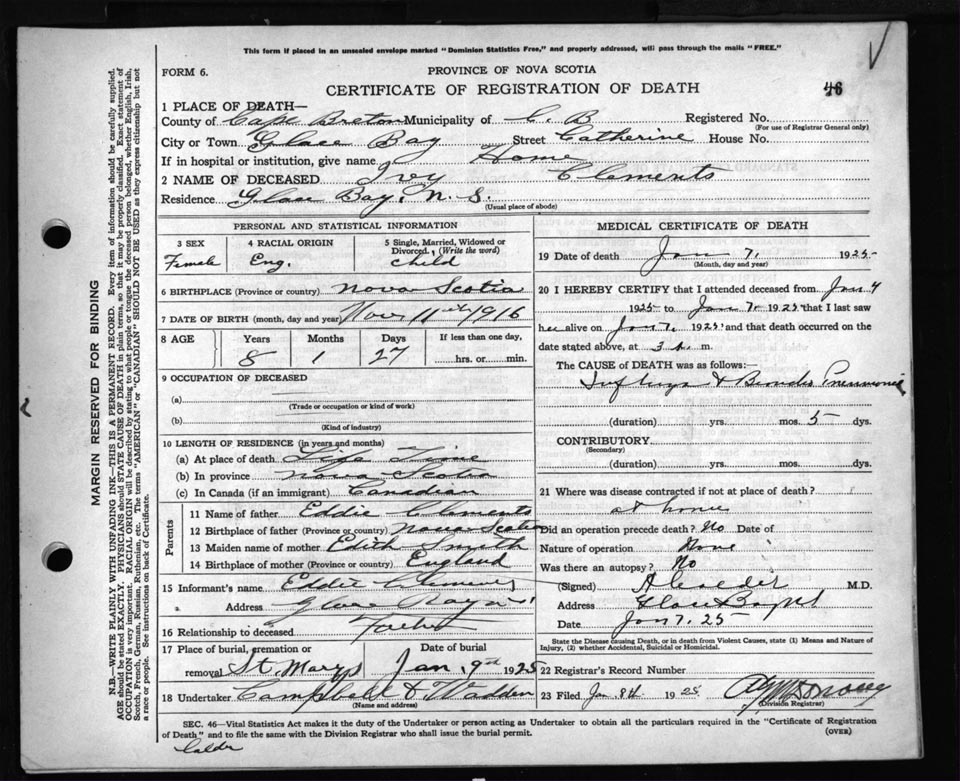 This form if placed in an unsealed envelope marked "Dominion Statistics Free," and properly addressed, will pass through the mails "FREE."
FORM 6.
PROVINCE OF NOVA SCOTIA
CERTIFICATE OF REGISTRATION OF DEATH
46
1 PLACE OF DEATH—
County of Cape Breton Municipality of C. B Registered No.
(For use of Registrar General only)
City or Town Glace Bay Street Catherine House No.
If in hospital or institution, give name Home
2 NAME OF DECEASED Ivy Clements
Residence Glace Bay, N. S.
(Usual place of abode)
PERSONAL AND STATISTICAL INFORMATION
3 SEX 4 RACIAL ORIGIN 5 Single, Married, Widowed or Divorced, (Write the word)
Female Eng. Child
6 BIRTHPLACE (Province or country) Nova Scotia
7 DATE OF BIRTH (month, day and year) Nov 11th 1916
8 AGE Years Months Days If less than one day,
8 1 27 hrs. or min.
9 OCCUPATION OF DECEASED
(a)
(Trade or occupation or kind of work)
(b)
(Kind of industry)
10 LENGTH OF RESIDENCE (in years and months)
(a) At place of death Life Time
(b) In province Nova Scotia
(c) In Canada (if an immigrant) Canadian
Parents
11 Name of father Eddie Clements
12 Birthplace of father (Province or country) Nova Scotia
13 Maiden name of mother Edith Smith
14 Birthplace of mother (Province or country) England
15 Informant's name Eddie Clements
Address Glace Bay
16 Relationship to deceased Father
17 Place of burial, cremation or removal Date of burial
St. Marys Jan. 9th 1925
18 Undertaker Campbell & Wadden
(Name and address)
MEDICAL CERTIFICATE OF DEATH
19 Date of death Jan 7, 1925
(Month, day and year)
20 I HEREBY CERTIFY that I attended deceased from Jan 4
1925 to Jan 7, 1925 that I last saw
her alive on Jan 7, 1925 and that death occurred on
date stated above, at 3 m.
The CAUSE of DEATH was as follows:
& Broncho Pneumonia
(duration) yrs. mos. 5 dys.
CONTRIBUTORY
(Secondary)
(duration) yrs. mos. dys.
21 Where was disease contracted if not at place of death?
at home
Did an operation precede death? No Date of
Nature of operation None
Was there an autopsy? No
(Signed) M.D.
Address Glace Bay
Date Jan 7. 25
State the Disease causing Death, or in death from Violent Causes, state (1) Means and Nature of Injury, (2) whether Accidental, Suicidal or Homicidal.
22 Registrar's Record Number
23 Filed Jan 8th 1925
(Division Registrar)
SEC. 46—Vital Statistics Act makes it the duty of the Undertaker or person acting as Undertaker to obtain all the particulars required in the "Certificate of Registration
of Death" and to file the same with the Division Registrar who shall issue the burial permit.
(OVER)
Calder
MARGIN RESERVED FOR BINDING
N.B.—WRITE PLAINLY WITH UNFADING INK—THIS IS A PERMANENT RECORD. Every item of information should be carefully supplied.
AGE should be stated EXACTLY. PHYSICIANS should STATE CAUSE OF DEATH in plain terms, so that it may be properly classified. Exact statement of
OCCUPATION is very important. RACIAL ORIGIN will be described by stating to what people or tongue the deceased person belonged, whether English, Irish,
Scotch, French, German, Russian, Ruthenian, etc. The terms "AMERICAN" or "CANADIAN" SHOULD NOT BE USED as they express citizenship but not
a race or people. See instructions on back of Certificate.